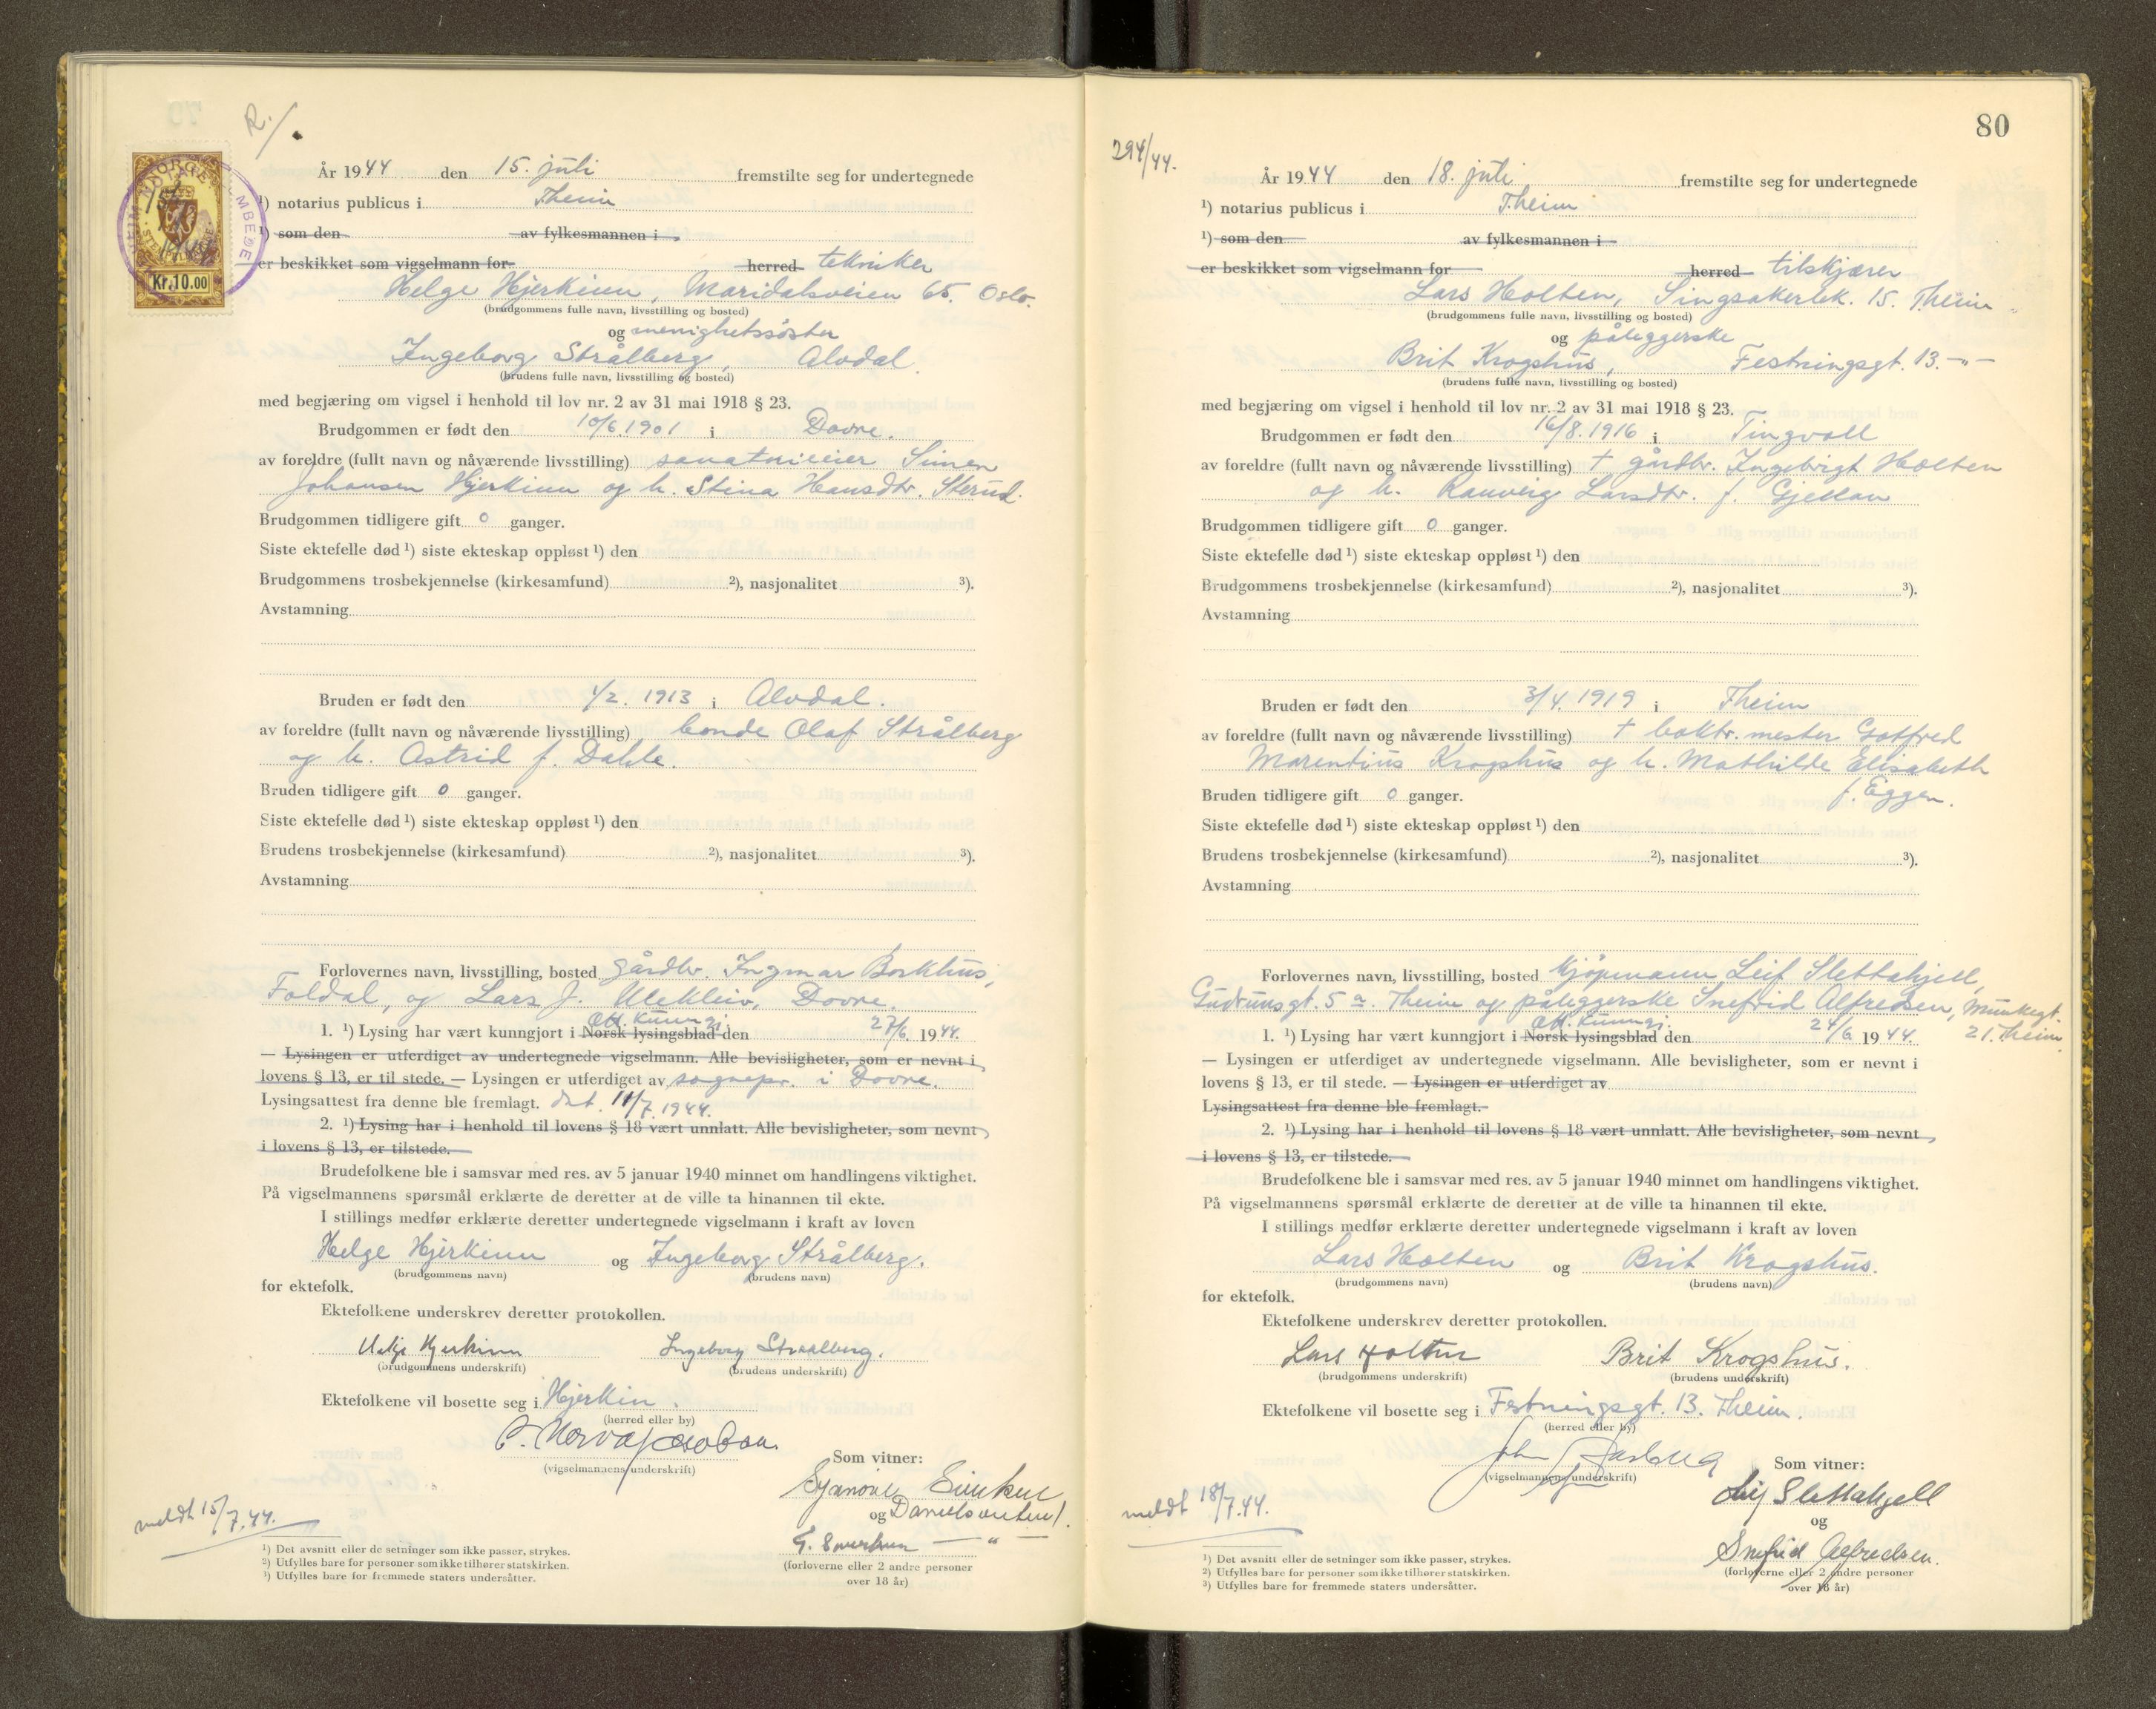 R./.
NORGE
Kr.10.00
År 1944 den 15. juli fremstilte seg for undertegnede
¹) notarius publicus i Theim
¹) som den av fylkesmannen i
er beskikket som vigselmann for herred tekniker
Helge Hjerkinn, Maridalsveien 65. Oslo.
(brudgommens fulle navn, livsstilling og bosted)
og menighetssöster
Ingeborg Strålberg, Alvdal.
(brudens fulle navn, livsstilling og bosted)
med begjæring om vigsel i henhold til lov nr. 2 av 31 mai 1918 § 23.
Brudgommen er født den 10/6.1901 i Dovre.
av foreldre (fullt navn og nåværende livsstilling) sanatorieeier Simen
Johansen Hjerkinn og h. Stina Hansdtr. Sterud.
Brudgommen tidligere gift 0 ganger.
Siste ektefelle død ¹) siste ekteskap oppløst ¹) den
Brudgommens trosbekjennelse (kirkesamfund) ²), nasjonalitet ³).
Avstamning
Bruden er født den 1/2. 1913 i Alvdal.
av foreldre (fullt navn og nåværende livsstilling) bonde Olaf Strålberg
og h. Astrid f. Dahle.
Bruden tidligere gift 0 ganger.
Siste ektefelle død ¹) siste ekteskap oppløst ¹) den
Brudens trosbekjennelse (kirkesamfund) ²), nasjonalitet ³).
Avstamning
Forlovernes navn, livsstilling, bosted gårdbr. Ingmar Borkhus,
Foldal, og Lars J. Ulekleiv, Dovre.
Off. kunngj.
1. ¹) Lysing har vært kunngjort i Norsk lysingsblad den 27/6. 1944.
— Lysingen er utferdiget av undertegnede vigselmann. Alle bevisligheter, som er nevnt i
lovens § 13, er til stede. — Lysingen er utferdiget av sognepr. i Dovre.
Lysingsattest fra denne ble fremlagt. dat. 11/7.1944.
2. ¹) Lysing har i henhold til lovens § 18 vært unnlatt. Alle bevisligheter, som nevnt
i lovens § 13, er tilstede.
Brudefolkene ble i samsvar med res. av 5 januar 1940 minnet om handlingens viktighet.
På vigselmannens spørsmål erklærte de deretter at de ville ta hinannen til ekte.
I stillings medfør erklærte deretter undertegnede vigselmann i kraft av loven
Helge Hjerkinn og Ingeborg Strålberg.
(brudgommens navn) (brudens navn)
for ektefolk.
Ektefolkene underskrev deretter protokollen.
Helge Hjerkinn Ingeborg Straalberg.
(brudgommens underskrift) (brudens underskrift)
Ektefolkene vil bosette seg i Hjerkin.
(herred eller by)
(vigselmannens underskrift)
Som vitner:
og
(forloverne eller 2 andre personer
over 18 år)
meldt 15/7.44.
¹) Det avsnitt eller de setninger som ikke passer, strykes.
²) Utfylles bare for personer som ikke tilhører statskirken.
³) Utfylles bare for fremmede staters undersåtter.
80
294/44.
År 1944 den 18. juli fremstilte seg for undertegnede
¹) notarius publicus i T.heim
¹) som den av fylkesmannen i
er beskikket som vigselmann for herred tilskjærer
Lars Holten, Singsakerbk. 15. Theim
(brudgommens fulle navn, livsstilling og bosted)
og påleggerske
Brit Krogshus, Festningsgt. 13. -"-
(brudens fulle navn, livsstilling og bosted)
med begjæring om vigsel i henhold til lov nr. 2 av 31 mai 1918 § 23.
Brudgommen er født den 16/8.1916 i Tingvoll
av foreldre (fullt navn og nåværende livsstilling) + gårdbr. Ingebrigt Holten
og h. Ranveig Larsdtr. f. Gjellan
Brudgommen tidligere gift 0 ganger.
Siste ektefelle død ¹) siste ekteskap oppløst ¹) den
Brudgommens trosbekjennelse (kirkesamfund) ²), nasjonalitet ³).
Avstamning
Bruden er født den 3/4.1919 i Theim
av foreldre (fullt navn og nåværende livsstilling) + boktr. mester Gotfred
Marentius Krogshus og h. Mathilde Elisabeth
f. Eggen.
Bruden tidligere gift 0 ganger.
Siste ektefelle død ¹) siste ekteskap oppløst ¹) den
Brudens trosbekjennelse (kirkesamfund) ²), nasjonalitet ³).
Avstamning
Forlovernes navn, livsstilling, bosted kjöpmann Leif Slettahjell,
Gudrunsgt. 5 a. Theim og påleggerske Snefrid Alfredsen, Munkegt.
21. Theim.
Off. kunngj.
1. ¹) Lysing har vært kunngjort i Norsk lysingsblad den 24/6 1944.
— Lysingen er utferdiget av undertegnede vigselmann. Alle bevisligheter, som er nevnt i
lovens § 13, er til stede. — Lysingen er utferdiget av
Lysingsattest fra denne ble fremlagt.
2. ¹) Lysing har i henhold til lovens § 18 vært unnlatt. Alle bevisligheter, som nevnt
i lovens § 13, er tilstede.
Brudefolkene ble i samsvar med res. av 5 januar 1940 minnet om handlingens viktighet.
På vigselmannens spørsmål erklærte de deretter at de ville ta hinannen til ekte.
I stillings medfør erklærte deretter undertegnede vigselmann i kraft av loven
Lars Holten og Brit Krogshus.
(brudgommens navn) (brudens navn)
for ektefolk.
Ektefolkene underskrev deretter protokollen.
Lars Holten Brit Krogshus.
(brudgommens underskrift) (brudens underskrift)
Ektefolkene vil bosette seg i Festningsgt. 13. Theim.
(herred eller by)
John
(vigselmannens underskrift)
Som vitner:
Leif Slettahjell
og
Snefrid Alfredsen.
(forloverne eller 2 andre personer
over 18 år)
meldt 18/7.44.
¹) Det avsnitt eller de setninger som ikke passer, strykes.
²) Utfylles bare for personer som ikke tilhører statskirken.
³) Utfylles bare for fremmede staters undersåtter.